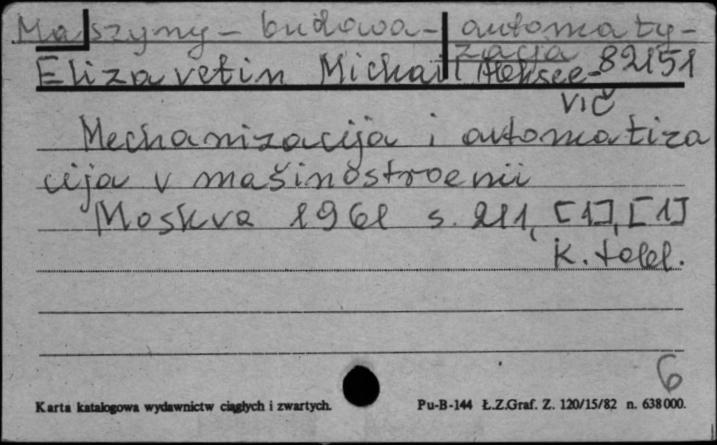 Maszyny - budowa - automaty-
zacja
Elizavetin Michail Alekse- 82151
vič
Mechanizacija i automatiza
cija v mašinostroenii
Moskva 1961 s. 211, [1], [1]
k. tabl.
6
Karta katalogowa wydawnictw ciągłych i zwartych.
Pu-B-144 Ł.Z.Graf. Z. 120/15/82 n. 638000.